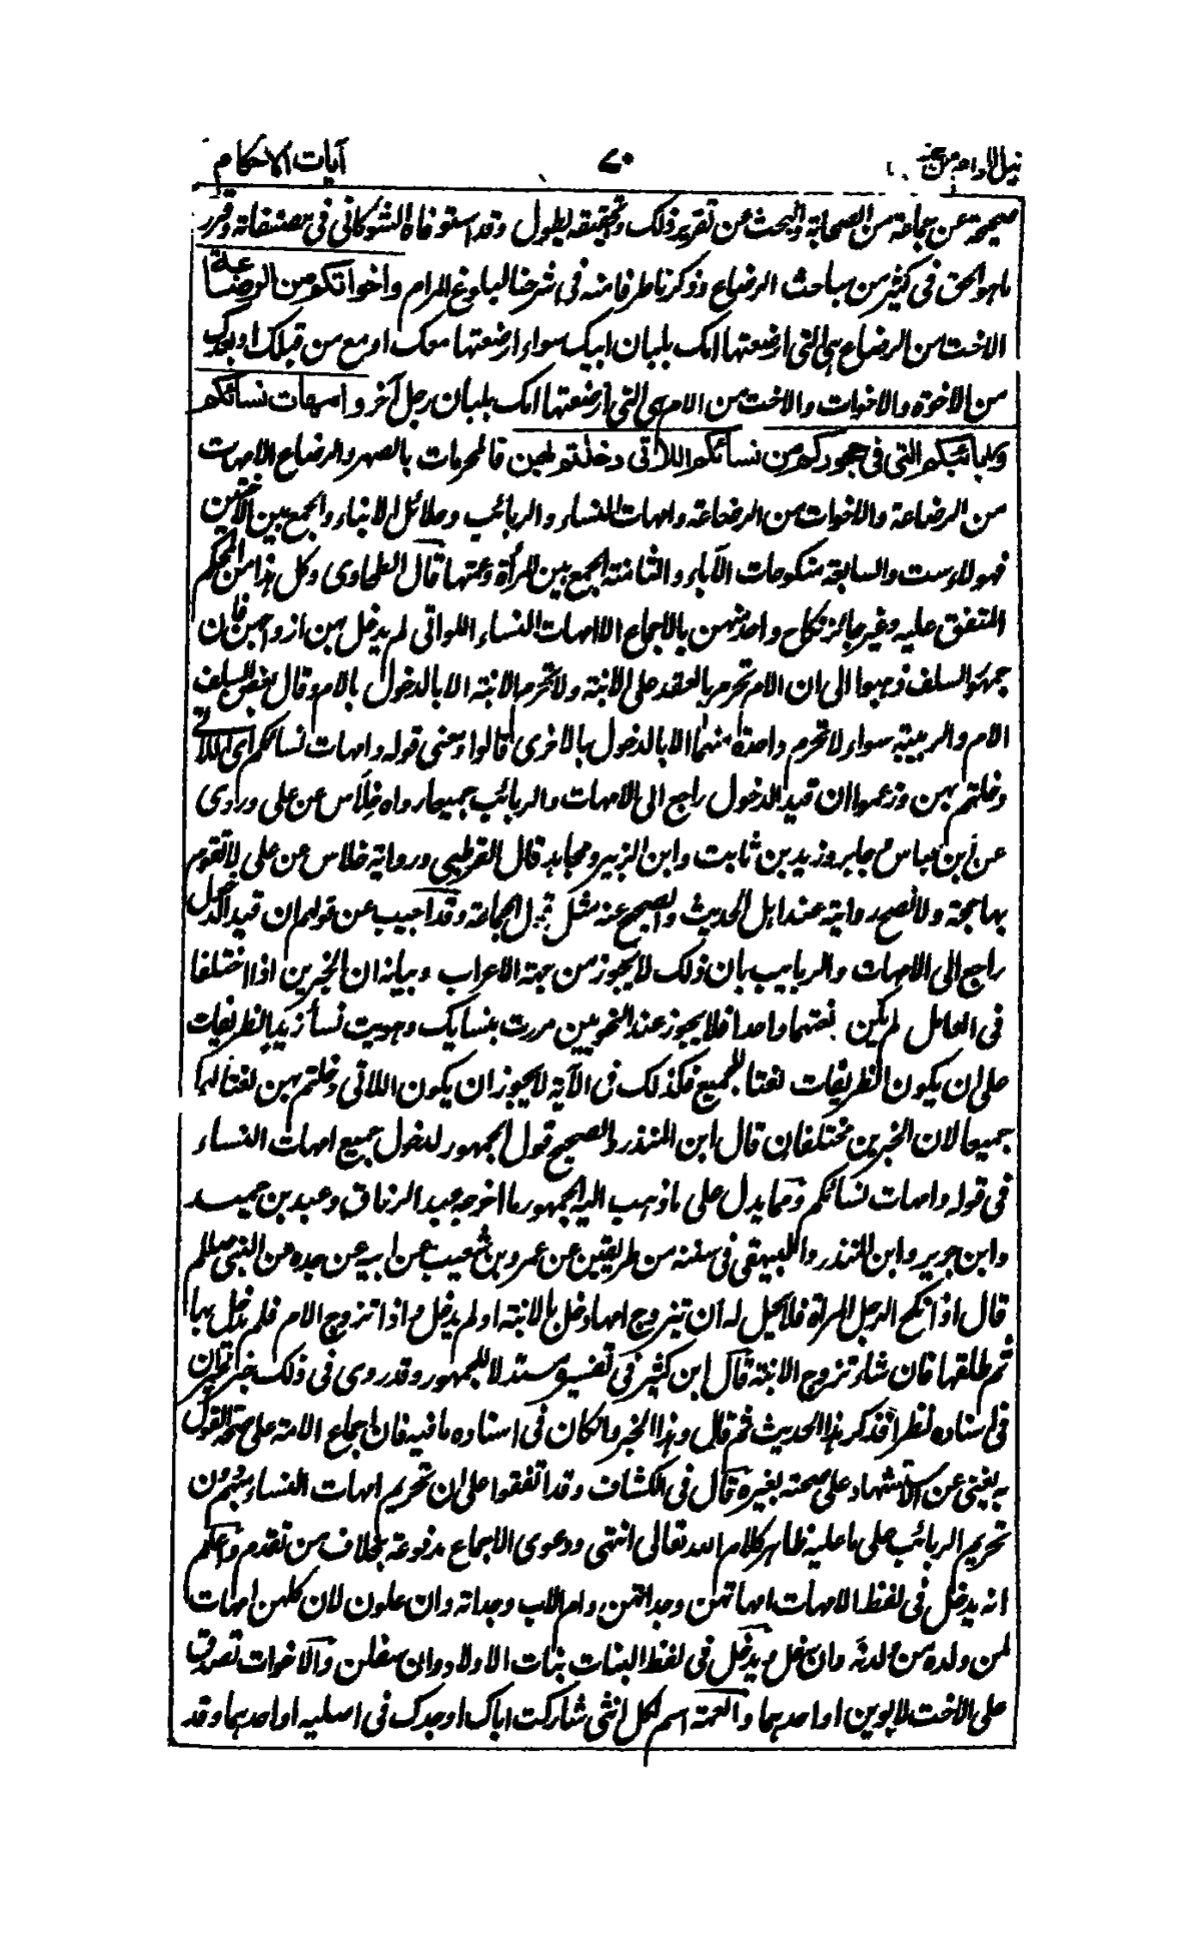 نيل المرام من ٧٠ آيات الاحكام
صحيحة عن جماعة من الصحابة والبحث عن تقرير ذلك وتحقيقه يطول وقد استوفاه الشوكاني في مصنفاته وقرر
ما هو الحق في كثير من مباحث الرضاع وذكرنا طرفا منه في شرحنا لبلوغ المرام واخواتكم من الرضاعة
الاخت من الرضاع هي التي ارضعتها امك بلبان ابيك سواء ارضعتها معك او مع من قبلك او بعدك
من الاخوة والاخوات والاخت من الام هي التي ارضعتها امك بلبان رجل آخر وامهات نسائكم
وربائبكم التي في حجوركم من نسائكم اللاتي دخلتم بهن فالمحرمات بالصهر والرضاع الامهات
من الرضاعة والاخوات من الرضاعة وامهات النساء والربائب وحلائل الابناء والجمع بين الاختين
فهولاء ست والسابعة منكوحات الآباء والثامنة الجمع بين المرأة وعمتها قال الطحاوي وكل هذا من المحكم
المتفق عليه وغير جائز نكاح واحدة منهن بالاجماع الا امهات النساء اللواتي لم يدخل بهن ازواجهن فان
جمهور السلف ذهبوا الى ان الام تحرم بالعقد على الابنة ولا تحرم الابنة الا بالدخول بالام وقال بعض السلف
الام والربيبة سواء لا تحرم واحدة منهما الا بالدخول بالاخرى قالوا ومعنى قوله وامهات نسائكم اي اللاتي
دخلتم بهن وزعموا ان قيد الدخول راجع الى الامهات والربائب جميعا رواه خلاس عن علي وروى
عن ابن عباس وجابر وزيد بن ثابت وابن الزبير ومجاهد قال القرطبي ورواية خلاس عن علي لا تقوم
بها حجة ولا تصح روايته عند اهل الحديث والصحيح عنه مثل قول الجماعة وقد اجيب عن قولهم ان قيد الدخول
راجع الى الامهات والربايب بان ذلك لا يجوز من جهة الاعراب وبيانه ان الخبرين اذا اختلفا
في العامل لم يكن نعتهما واحدا فلا يجوز عند النحويين مررت بنسايك وهويت نسأ زيد الظريفات
على ان يكون الظريفات نعتا للجميع فكذلك في الآية لا يجوز ان يكون اللاتي دخلتم بهن نعتا لهما
جميعا لان الخبرين مختلفان قال ابن المنذر والصحيح قول الجمهور لدخول جميع امهات النساء
في قوله وامهات نسائكم ومما يدل على ما ذهب اليه الجمهور ما اخرجه عبد الرزاق وعبد بن حميد
وابن جرير وابن المنذر والبيهقي في سننه من طريقين عن عمرو بن شعيب عن ابيه عن جده عن النبي صللم
قال اذا نكح الرجل المرأة فلا يحل له ان تيزوج امها دخل بالابنة او لم يدخل واذا تزوج الام فلم يدخل بها
ثم طلقها فان شاء تزوج الابنة قال ابن كثير في تفسيره مستدلا للجمهور وقد روى في ذلك خبر غير ان
في اسناده نظرا فذكر هذا الحديث ثم قال وهذا الخبر وان كان في اسناده ما فيه فان اجماع الامة على صحة القول
به يغني عن الاستشهاد على صحته بغيره قال في الكشاف وقد اتفقوا على ان تحريم امهات النساء مبهم دون
تحريم الربائب على ما عليه ظاهر كلام الله تعالى انتهى ودعوى الاجماع مدفوعة بخلاف من تقدم واعلم
انه يدخل في لفظ الامهات امهاتهن وجداتهن وام الاب وجداته وان علون لان كلهن امهات
لمن ولده من ولدنه وان سفل ويدخل في لفظ البنات بنات الاولاد وان سفلن والاخوات تصدق
على الاخت لابوين او احدهما والعمة اسم لكل انثى شاركت اباك او جدك في اصليه او احدهما وقد